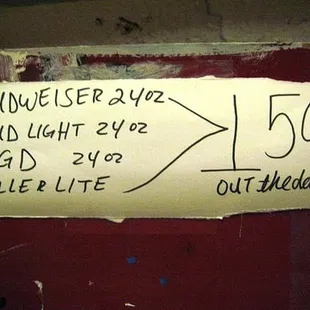 DWEISER 24oz
D LIGHT 24oz
GD 24oz
LLER LITE
1 50
OUT the do